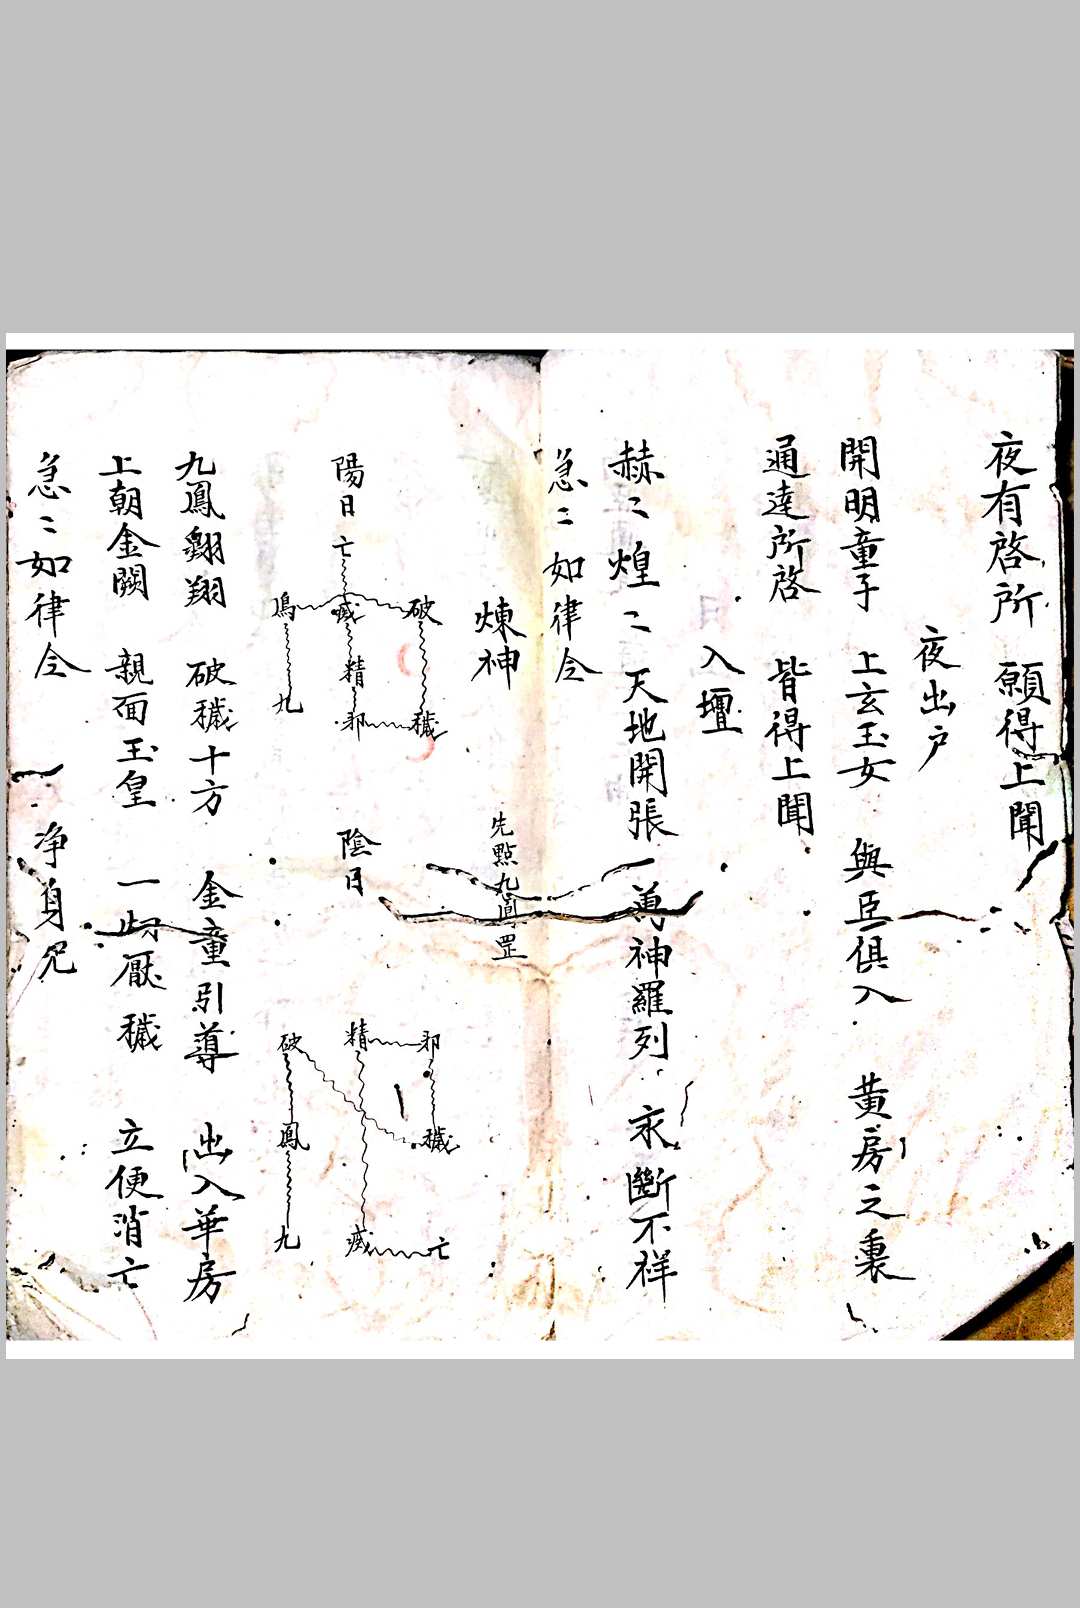 夜有啓所　願得上聞
夜出户
開明童子　上玄玉女　與臣俱入　黄房之裏
通達所啓　皆得上聞
入壇
赫〻煌〻　天地開張　萬神羅列　永斷不祥
急〻如律令
煉神
先點九鳳罡
陽日
亡
鳴　滅　破
精
九　邪　穢
陰日
破　精　邪
鳳　穢
九　滅　亡
九鳳翱翔　破穢十方　金童引導　出入華房
上朝金闕　親面玉皇　一切厭穢　立便消亡
急〻如律令　净身咒